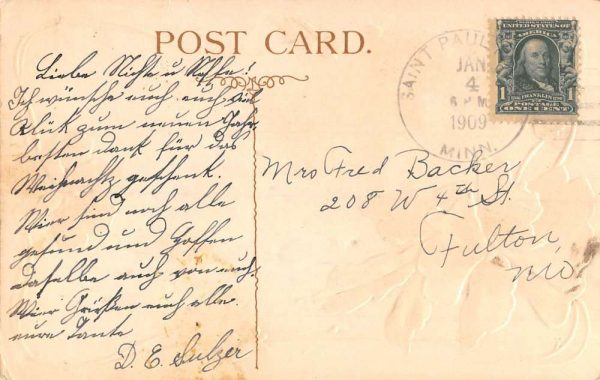 POST CARD.
Liebe Nichte u Neffe!
Ich wünsche euch auch viel
Glück zum neuen Jahr
besten dank für das
Weihnachtz geschenk.
Wier sind noch alle
gesund und hoffen
daselbe auch von euch.
Wier Grüßen euch alle.
eure Tante
D. E. Sulzer
SAINT PAUL
JAN
4
6 PM
1909
MINN.
UNITED STATES OF AMERICA
1 FRANKLIN 1
POSTAGE
ONE CENT
Mrs Fred Backer
208 W 4th St.
Fulton,
Mo.